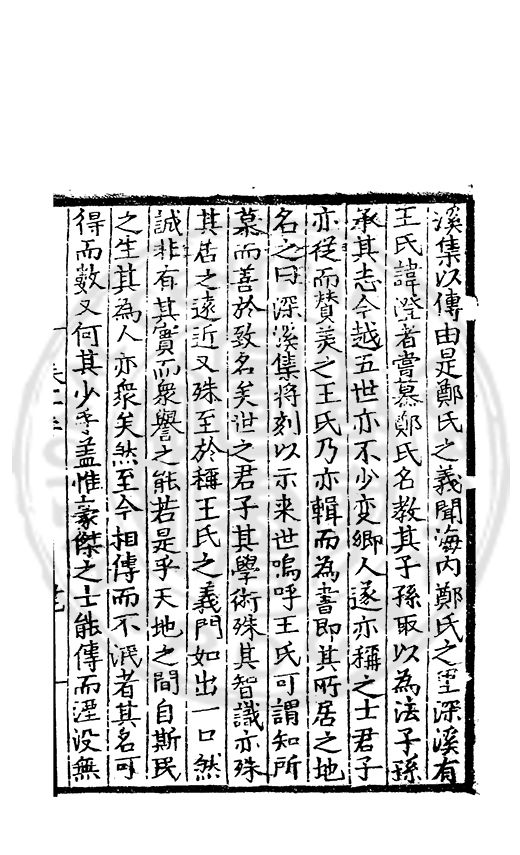 溪集以傳由是鄭氏之義聞海内鄭氏之里深溪有
王氏諱澄者嘗慕鄭氏名教其子孫取以為法子孫
承其志今越五世亦不少变鄉人遂亦稱之士君子
亦從而賛美之王氏乃亦輯而為書即其所居之地
名之曰深溪集將刻以示来世嗚呼王氏可謂知所
慕而善於致名矣世之君子其學術殊其智識亦殊
其居之遠近又殊至於稱王氏之義門如出一口然
誠非有其實而衆譽之能若是乎天地之間自斯民
之生其為人亦衆矣然至今相傳而不泯者其名可
得而数又何其少乎盖惟豪傑之士能傳而湮没無